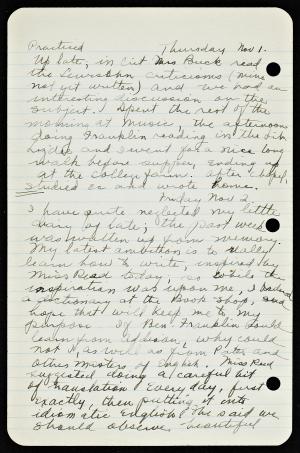 Practiced Thursday Nov 1.
Up late; in Lit Miss Buck read
the criticisms (mine
not yet written) and we had an
interesting discussion on the
subject. Spent the rest of the
morning at Music, the afternoon
doing Franklin reading in the Lib
and I went for a nice long
walk before supper, ending up
at the college farm. After chapel,
studied ec and wrote home.
Friday Nov 2.
I have quite neglected my little
diary of late; the past week
was written up from memory.
My latest ambition is to really
learn how to write, inspired by
Miss Read today. So while the
inspiration was upon me, I
a dictionary at the Book Shop, and
hope that will keep me to my
purpose. If Ben Franklin could
learn from Addison, why could
not I, as well as from Pater and
other Masters of English. Miss Read
suggested doing a careful bit
of translation every day, first
exactly, then putting it into
idiomatic English. She said we
should observe beautiful